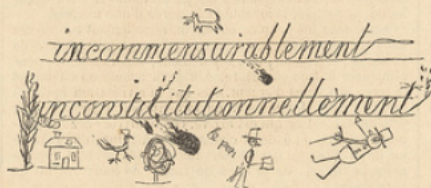 incommensurablement
inconstitutionnellement